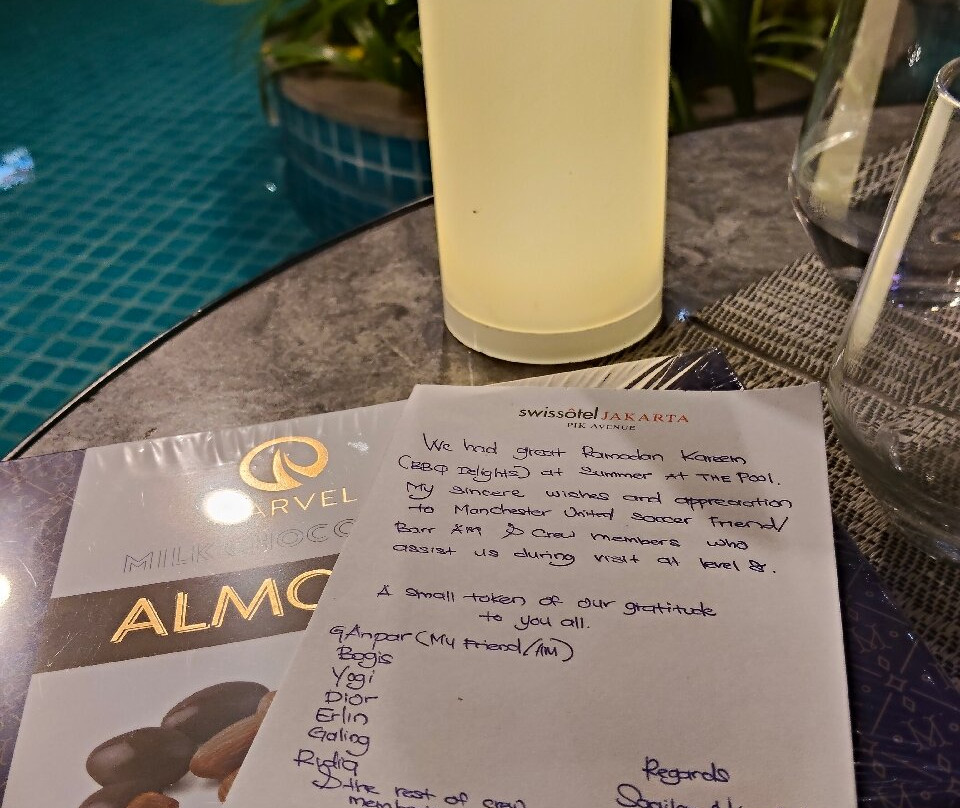 swissôtel JAKARTA
PIK AVENUE
We had great Ramadan Kareem
(BBQ Delights) at Summer at THE Pool.
My sincere wishes and appreciation
to Manchester United soccer friend/
Barr AM & Crew members who
assist us during visit at level 8.
A small token of our gratitude
to you all.
Anpar (My Friend/AM)
Bagis
Yogi
Dior
Erlin
Galing
& the rest of crew
Regards
ARVEL
MILK CHOCO
ALMO